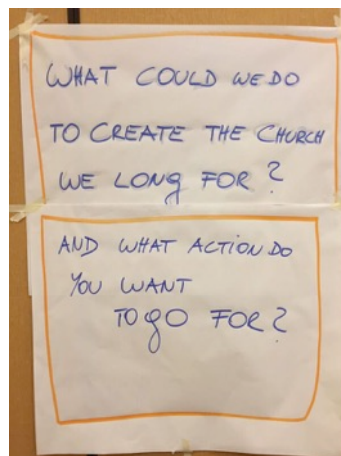 WHAT COULD WE DO
TO CREATE THE CHURCH
WE LONG FOR?
AND WHAT ACTION DO
YOU WANT
TO GO FOR?